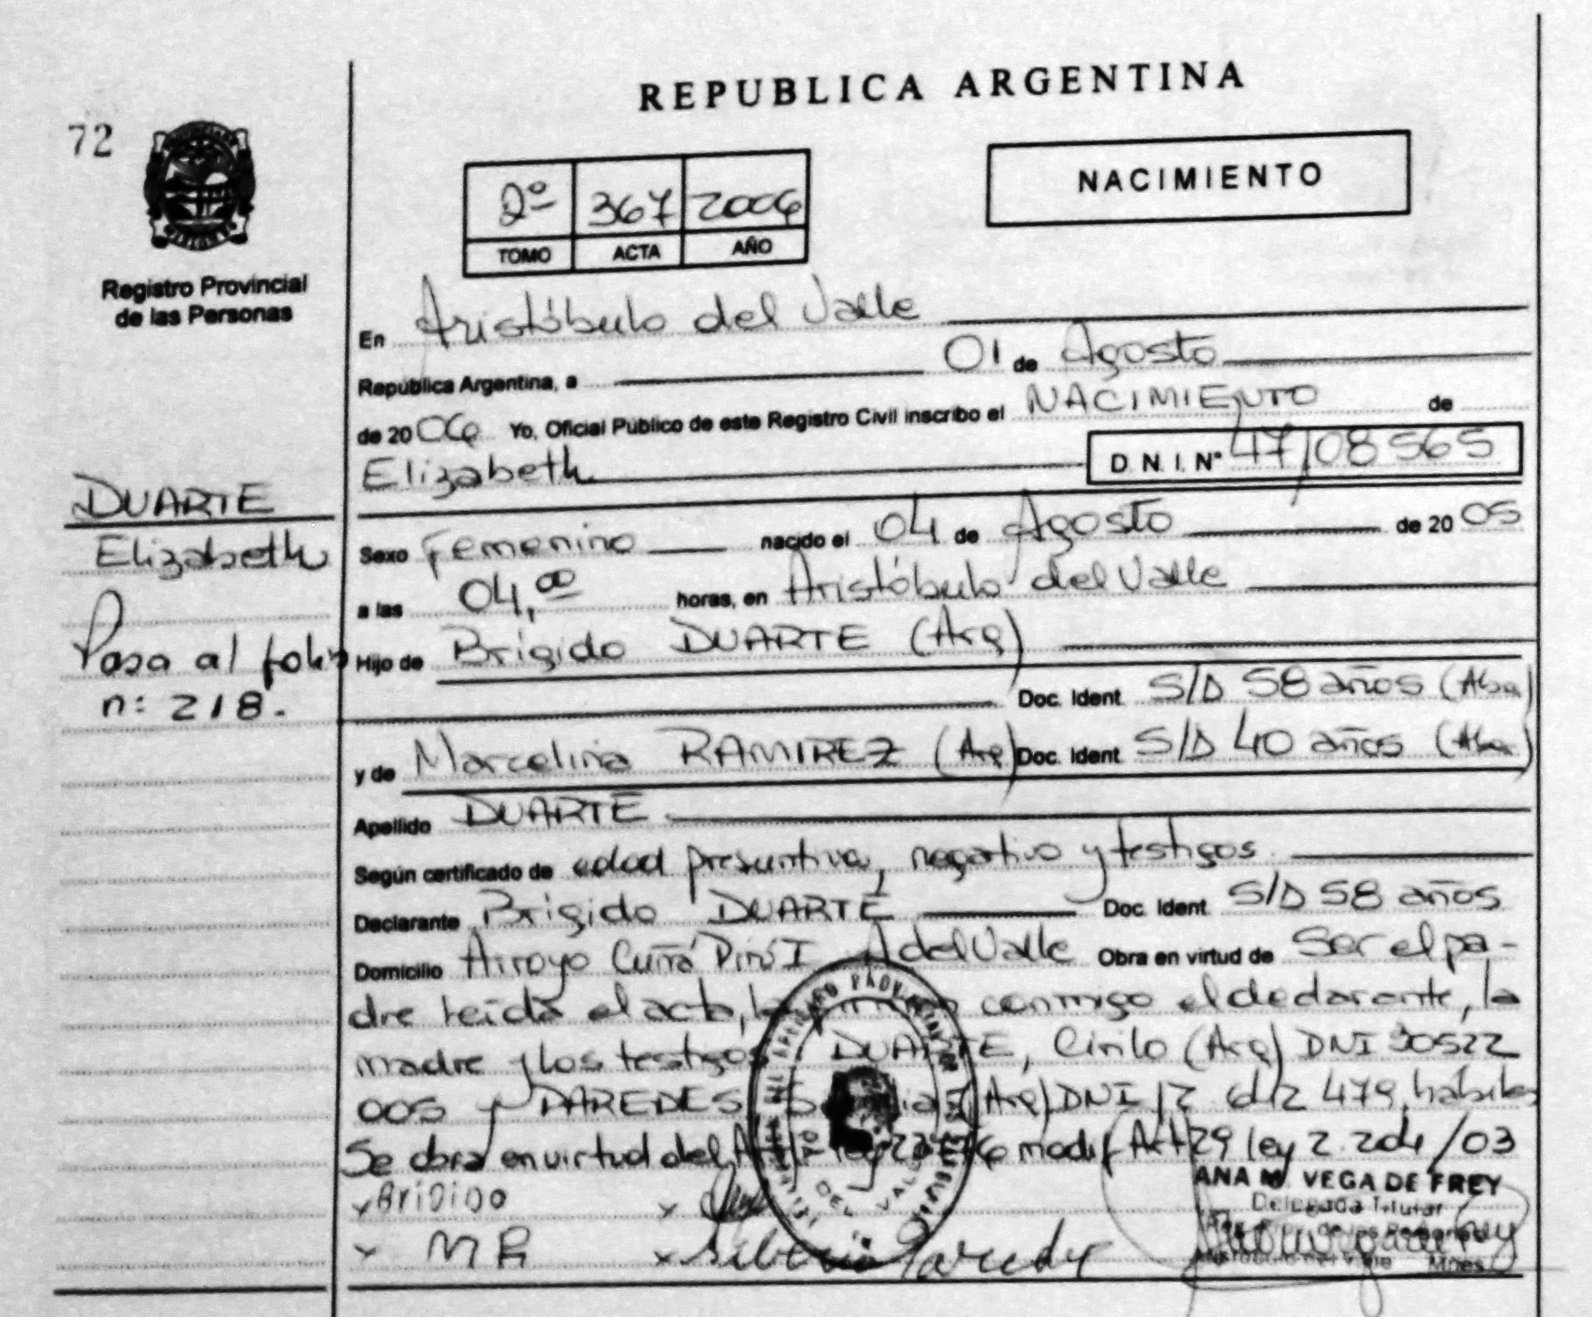 REPUBLICA ARGENTINA
72
NACIMIENTO
2º 367 2006
TOMO ACTA AÑO
Registro Provincial
de las Personas
En Aristóbulo del Valle
República Argentina, a 01 de Agosto
de 2006 Yo, Oficial Público de este Registro Civil inscribo el NACIMIENTO de
Elizabeth D.N.I. Nº 47108565
DUARTE
Elizabeth
Pasa al folio
n: 218.
Sexo Femenino nacido el 04 de Agosto de 2005
a las 04,00 horas, en Aristóbulo del Valle
Hijo de Brígido DUARTE (Arg)
Doc. Ident. S/D 58 años (Abo)
y de Marcelina RAMIREZ (Arg) Doc. Ident. S/D 40 años (Abo)
Apellido DUARTE
Según certificado de edad presuntiva, negativo y testigos
Declarante Brígido DUARTE Doc. Ident. S/D 58 años
Domicilio Arroyo Cuñá Pirú I A del Valle Obra en virtud de Ser el pa-
dre leída el acta, la conmigo el declarante, la
madre y los testigos DUARTE, Cirilo (Arg) DNI 30522
005 y PAREDES, (Arg) DNI 17 642 479, hábiles
Se obra en virtud del modif Art 29 ley 2.204/03
x BRIDIDO
x MR
ANA M. VEGA DE FREY
Delegada Titular
de las Personas
Mnes